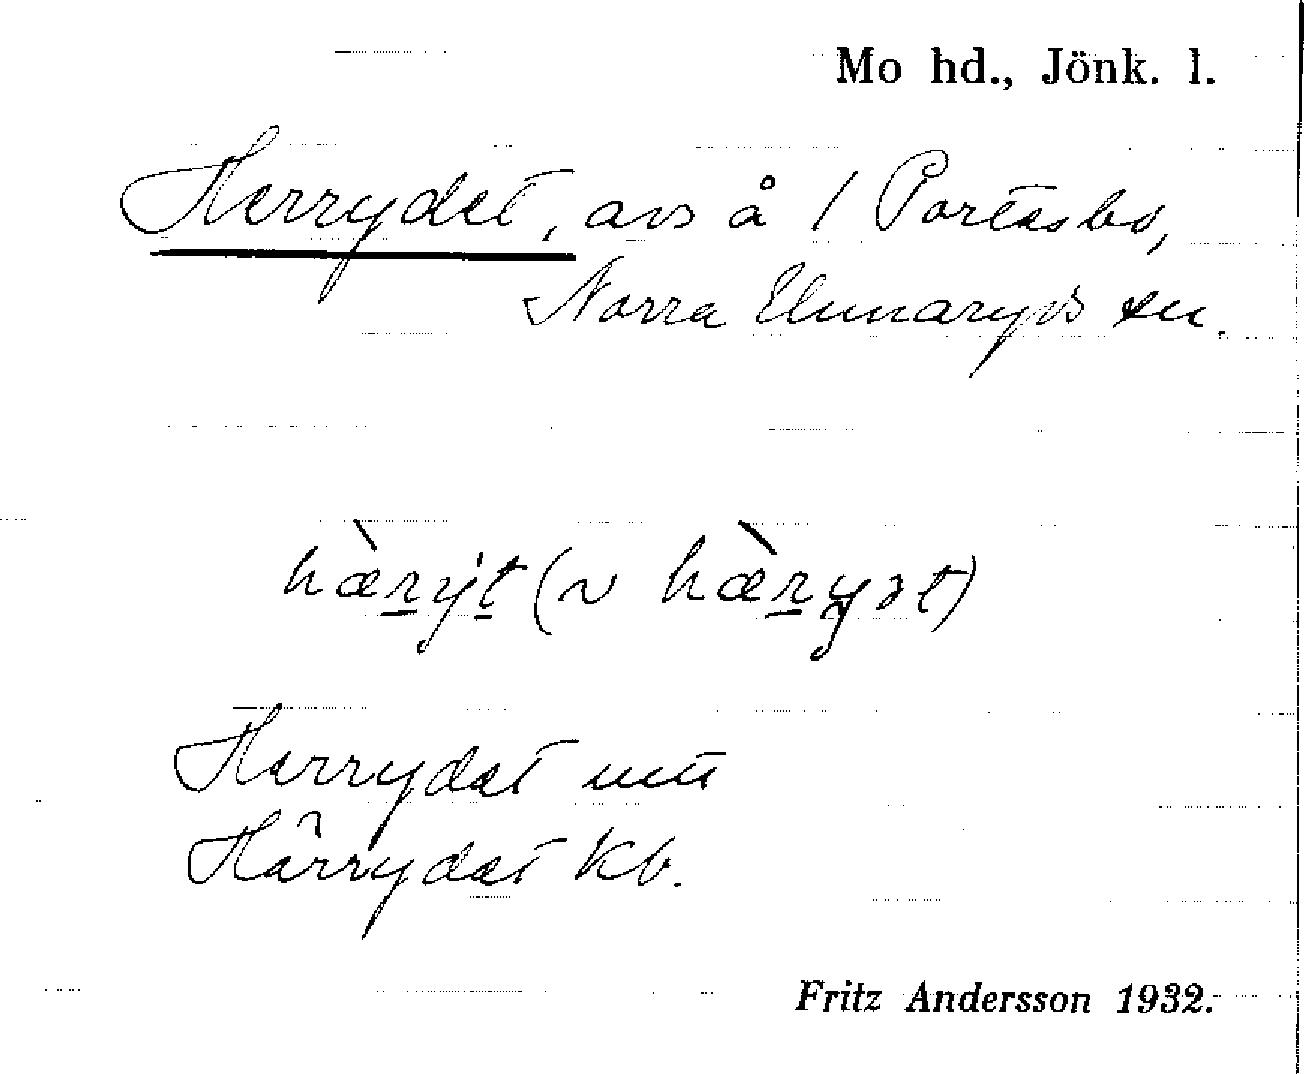 Mo hd., Jönk. l.
Herrydet, avs å 1 Portasbo,
Norra Unnaryds sn.
hæ̀ry̍t (~ hæ̀ryət)
Herrydet uu
Härrydet kb.
Fritz Andersson 1932.